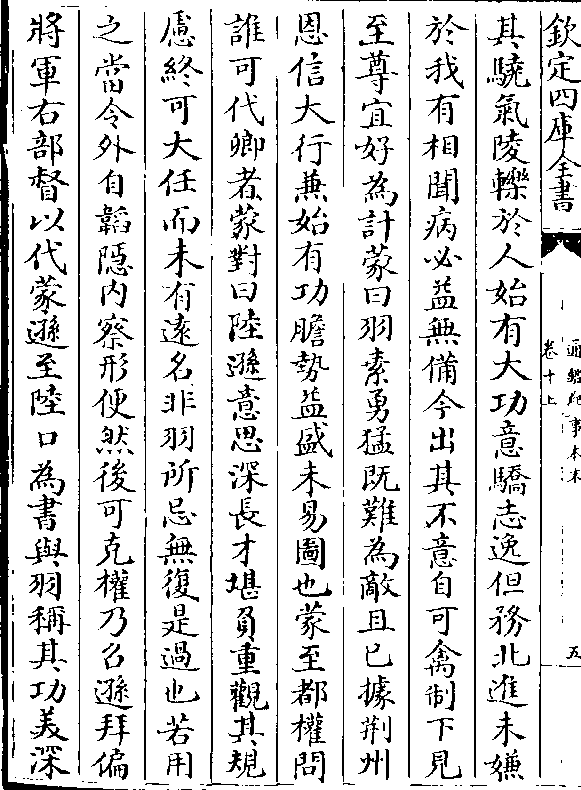 欽定四庫全書
通鑑紀事本末
卷十上
五
其驍氣陵轢於人始有大功意驕志逸但務北進未嫌
於我有相聞病必益無備今出其不意自可禽制下見
至尊宜好為計蒙曰羽素勇猛既難為敵且已據荆州
恩信大行兼始有功膽勢益盛未易圖也蒙至都權問
誰可代卿者蒙對曰陸遜意思深長才堪負重觀其規
慮終可大任而未有遠名非羽所忌無復是過也若用
之當令外自韜隱内察形便然後可克權乃召遜拜偏
將軍右部督以代蒙遜至陸口為書與羽稱其功美深